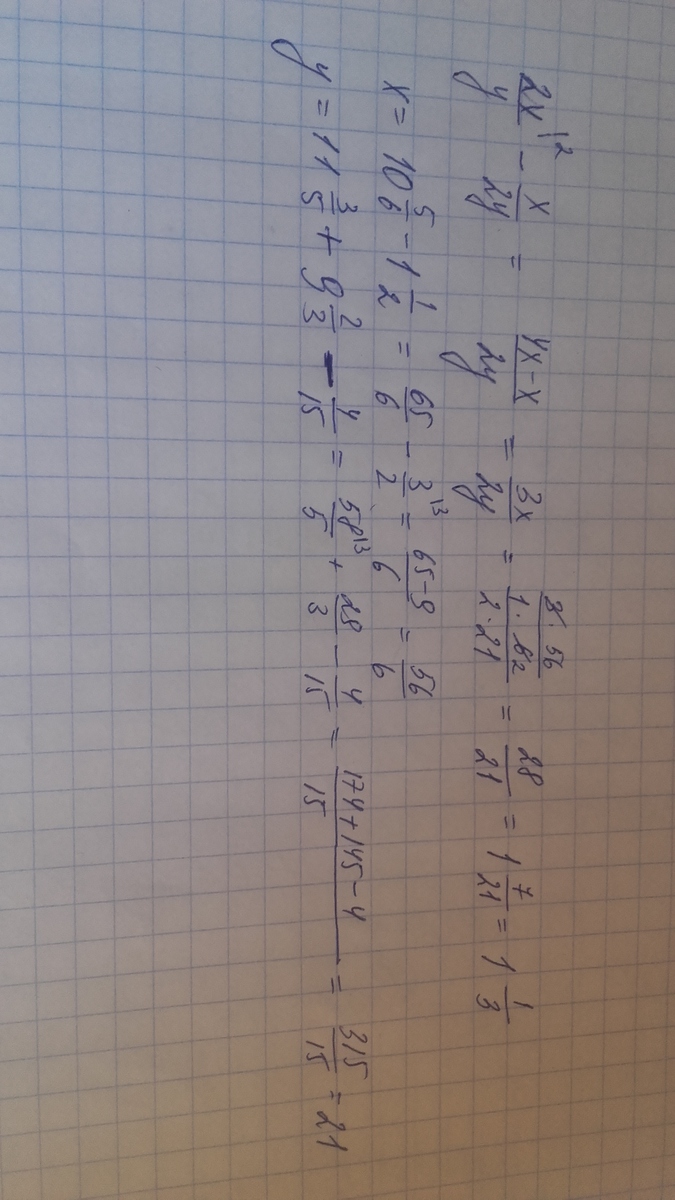 2x/y |2 - x/2y = 4x-x/2y = 3x/2y = 3·56/1·6 2/2·21 = 28/21 = 1 7/21 = 1 1/3
x = 10 5/6 - 1 1/2 = 65/6 - 3/2 |3 = 65-9/6 = 56/6
y = 11 3/5 + 9 2/3 - 4/15 = 58/5 |3 + 29/3 - 4/15 = 174+145-4/15 = 315/15 = 21